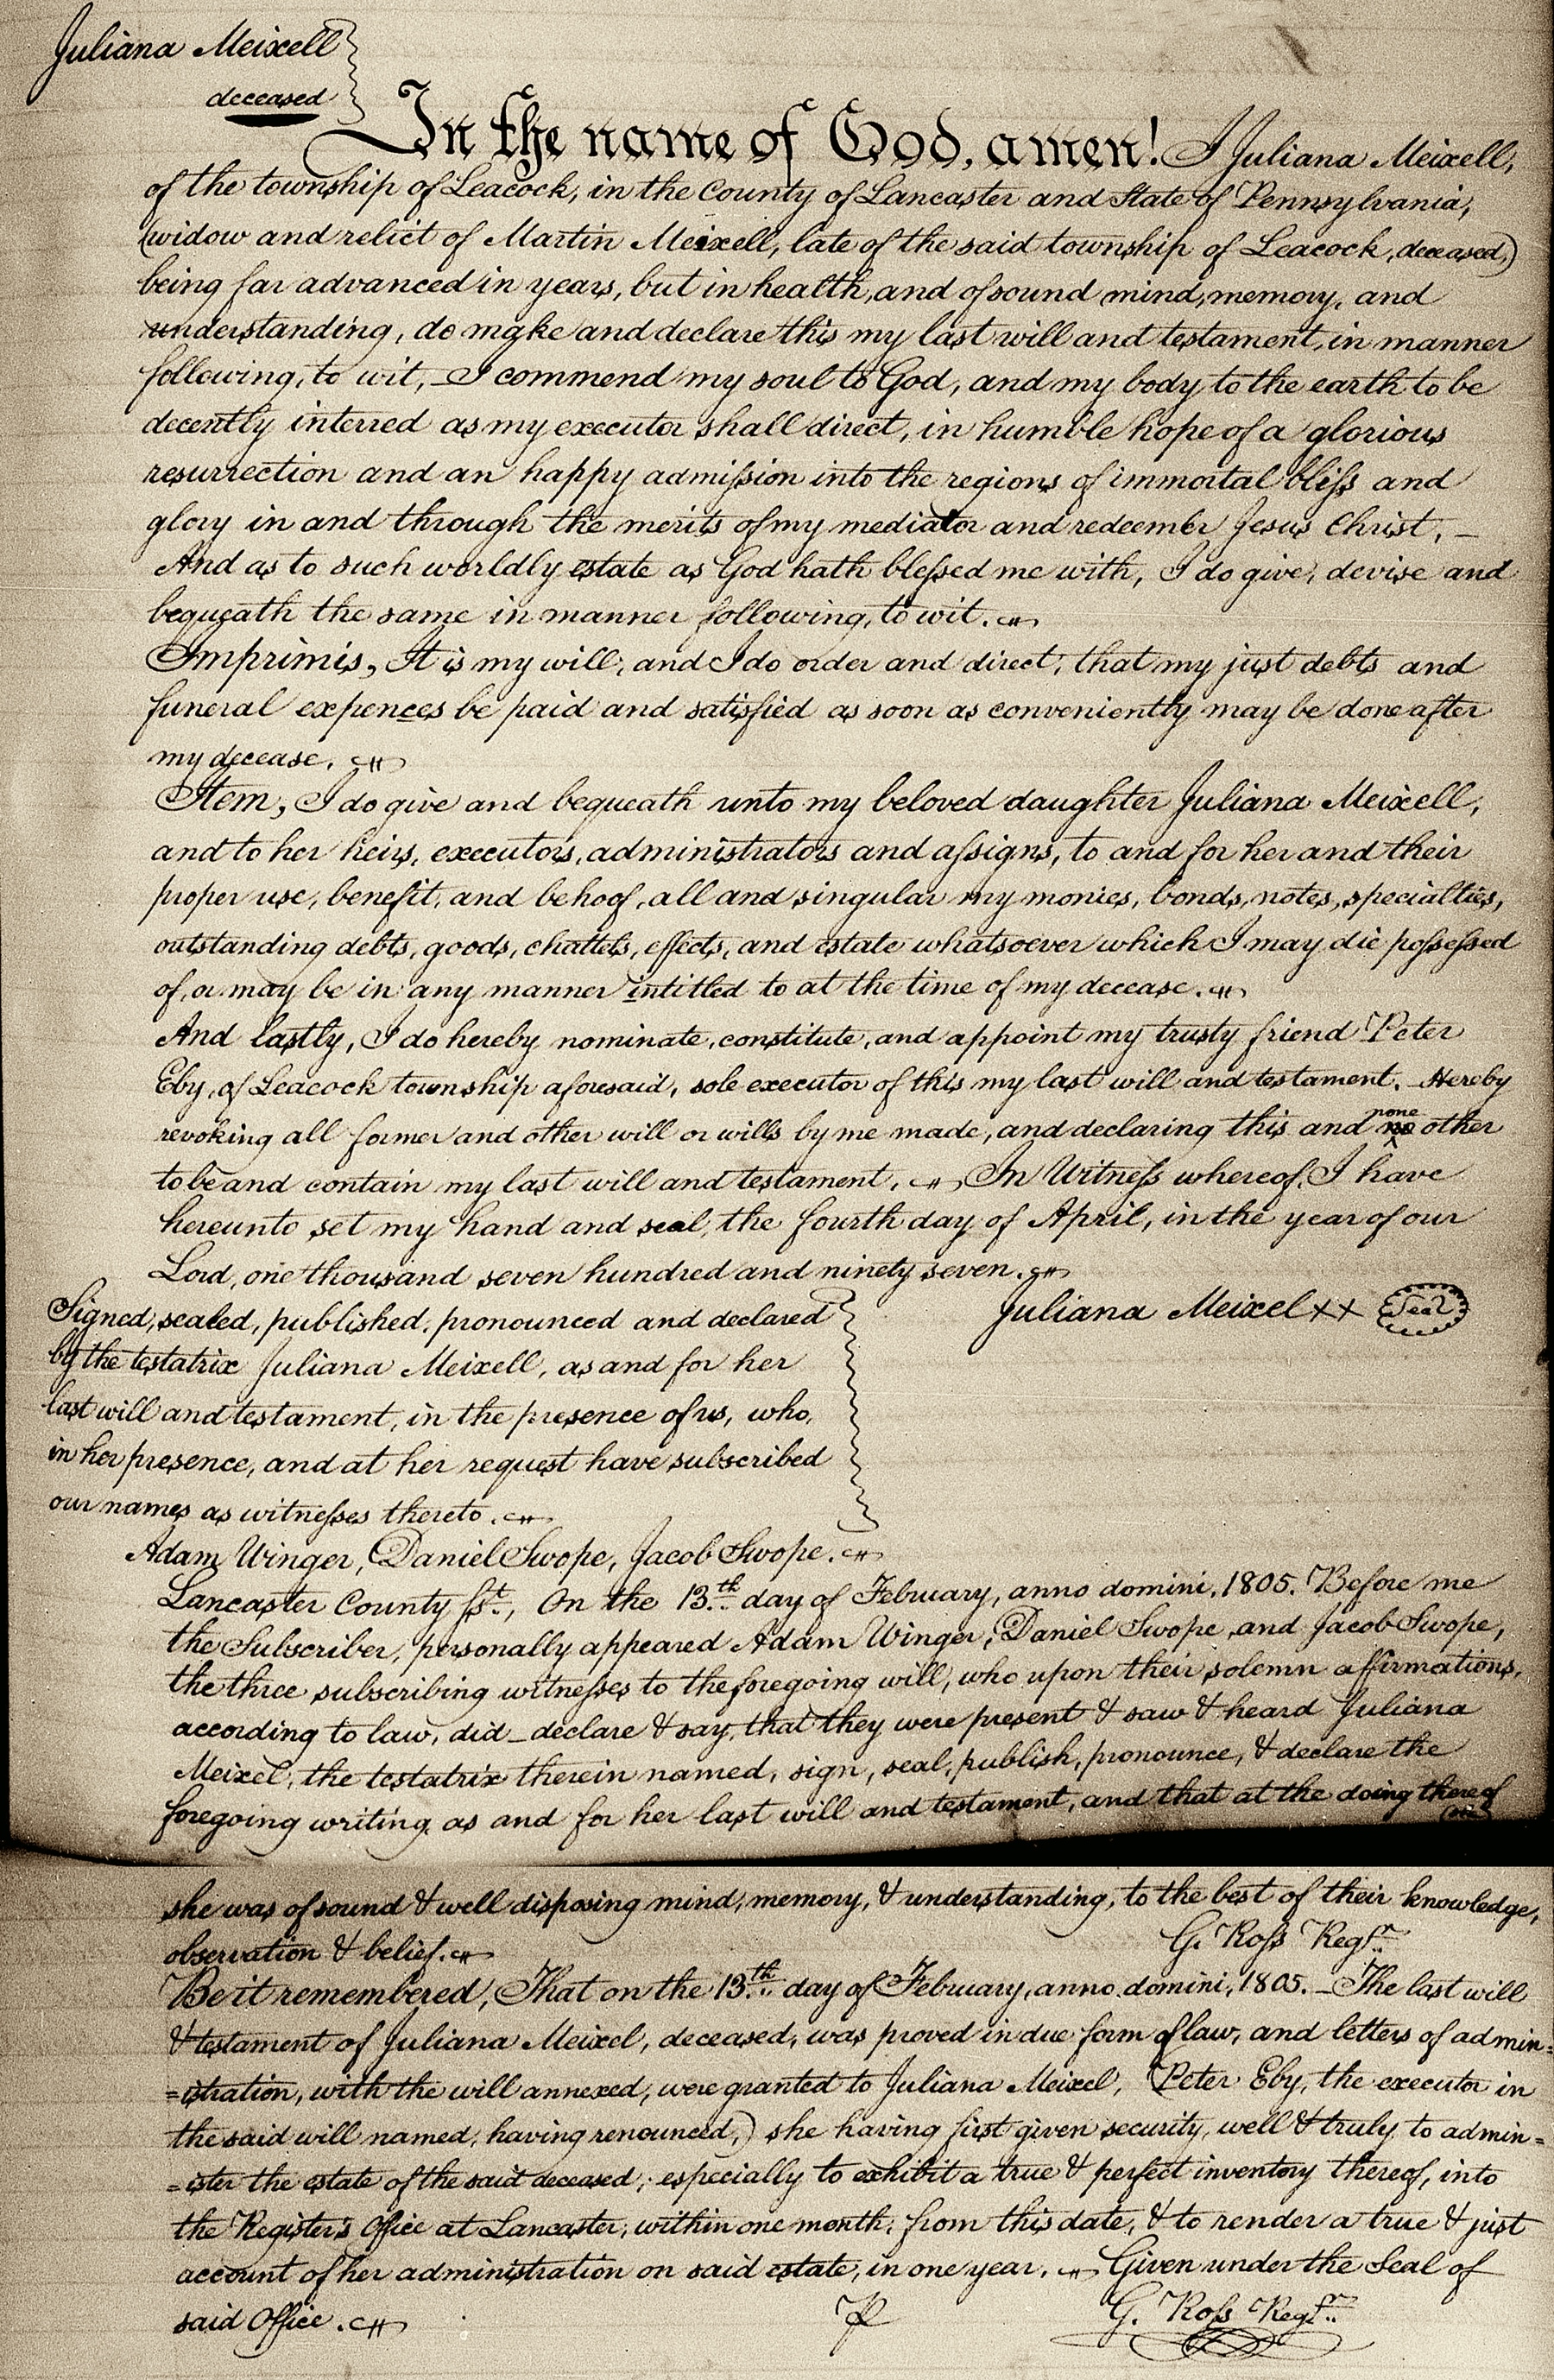 Juliana Meixell
deceased
In the name of God, amen! I Juliana Meixell,
of the township of Leacock, in the County of Lancaster and State of Pennsylvania,
(widow and relict of Martin Meixell, late of the said township of Leacock, deceased,)
being far advanced in years, but in health, and of sound mind, memory, and
understanding, do make and declare this my last will and testament, in manner
following, to wit, I commend my soul to God, and my body to the earth to be
decently interred as my executor shall direct, in humble hope of a glorious
resurrection and an happy admission into the regions of immortal bliss and
glory in and through the merits of my mediator and redeemer Jesus Christ. —
And as to such worldly estate as God hath blessed me with, I do give, devise and
bequeath the same in manner following, to wit.
Imprimis, It is my will, and I do order and direct, that my just debts and
funeral expences be paid and satisfied as soon as conveniently may be done after
my decease.
Item, I do give and bequeath unto my beloved daughter Juliana Meixell,
and to her heirs, executors, administrators and assigns, to and for her and their
proper use, benefit, and behoof, all and singular my monies, bonds, notes, specialties,
outstanding debts, goods, chattels, effects, and estate whatsoever which I may die possessed
of, or may be in any manner intitled to at the time of my decease.
And lastly, I do hereby nominate, constitute, and appoint my trusty friend Peter
Eby, of Leacock township aforesaid, sole executor of this my last will and testament. Hereby
revoking all former and other will or wills by me made, and declaring this and none other
to be and contain my last will and testament. In Witness whereof, I have
hereunto set my hand and seal, the fourth day of April, in the year of our
Lord, one thousand seven hundred and ninety seven.
Juliana Meixel XX Seal
Signed, sealed, published, pronounced and declared
by the testatrix Juliana Meixell, as and for her
last will and testament, in the presence of us, who,
in her presence, and at her request have subscribed
our names as witnesses thereto.
Adam Winger, Daniel Swope, Jacob Swope.
Lancaster County sst., On the 13th day of February, anno domini, 1805. Before me
the Subscriber, personally appeared Adam Winger, Daniel Swope, and Jacob Swope,
the three subscribing witnesses to the foregoing will, who upon their solemn affirmations,
according to law, did declare & say, that they were present & saw & heard Juliana
Meixel, the testatrix therein named, sign, seal, publish, pronounce, & declare the
foregoing writing as and for her last will and testament, and that at the doing thereof
she was of sound & well disposing mind, memory, & understanding, to the best of their knowledge,
observation & belief.
G. Ross Regr.
Be it remembered, That on the 13th day of February, anno domini, 1805. The last will
& testament of Juliana Meixel, deceased, was proved in due form of law, and letters of admin=
=istration, with the will annexed, were granted to Juliana Meixel, Peter Eby, the executor in
the said will named, having renounced,) she having first given security, well & truly to admin=
=ister the estate of the said deceased, especially to exhibit a true & perfect inventory thereof, into
the Register's Office at Lancaster, within one month, from this date, & to render a true & just
account of her administration on said estate, in one year. Given under the Seal of
said Office.
G. Ross Regr.